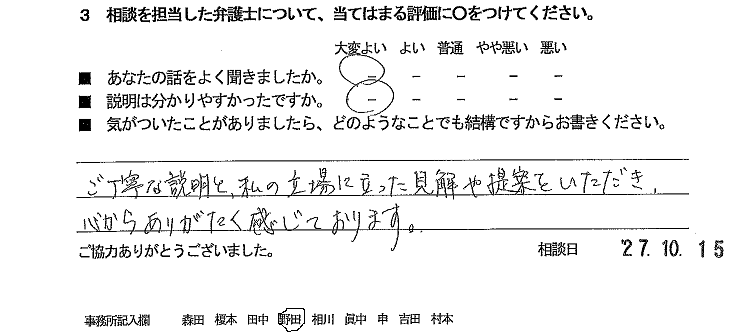 3 相談を担当した弁護士について、当てはまる評価に〇をつけてください。
大変よい よい 普通 やや悪い 悪い
■ あなたの話をよく聞きましたか。 － － － － －
■ 説明は分かりやすかったですか。 － － － － －
■ 気がついたことがありましたら、どのようなことでも結構ですからお書きください。
ご丁寧な説明と、私の立場に立った見解や提案をいただき、
心からありがたく感じております。
ご協力ありがとうございました。 相談日 '27.10.15
事務所記入欄 森田 榎本 田中 野田 相川 眞中 申 吉田 村本